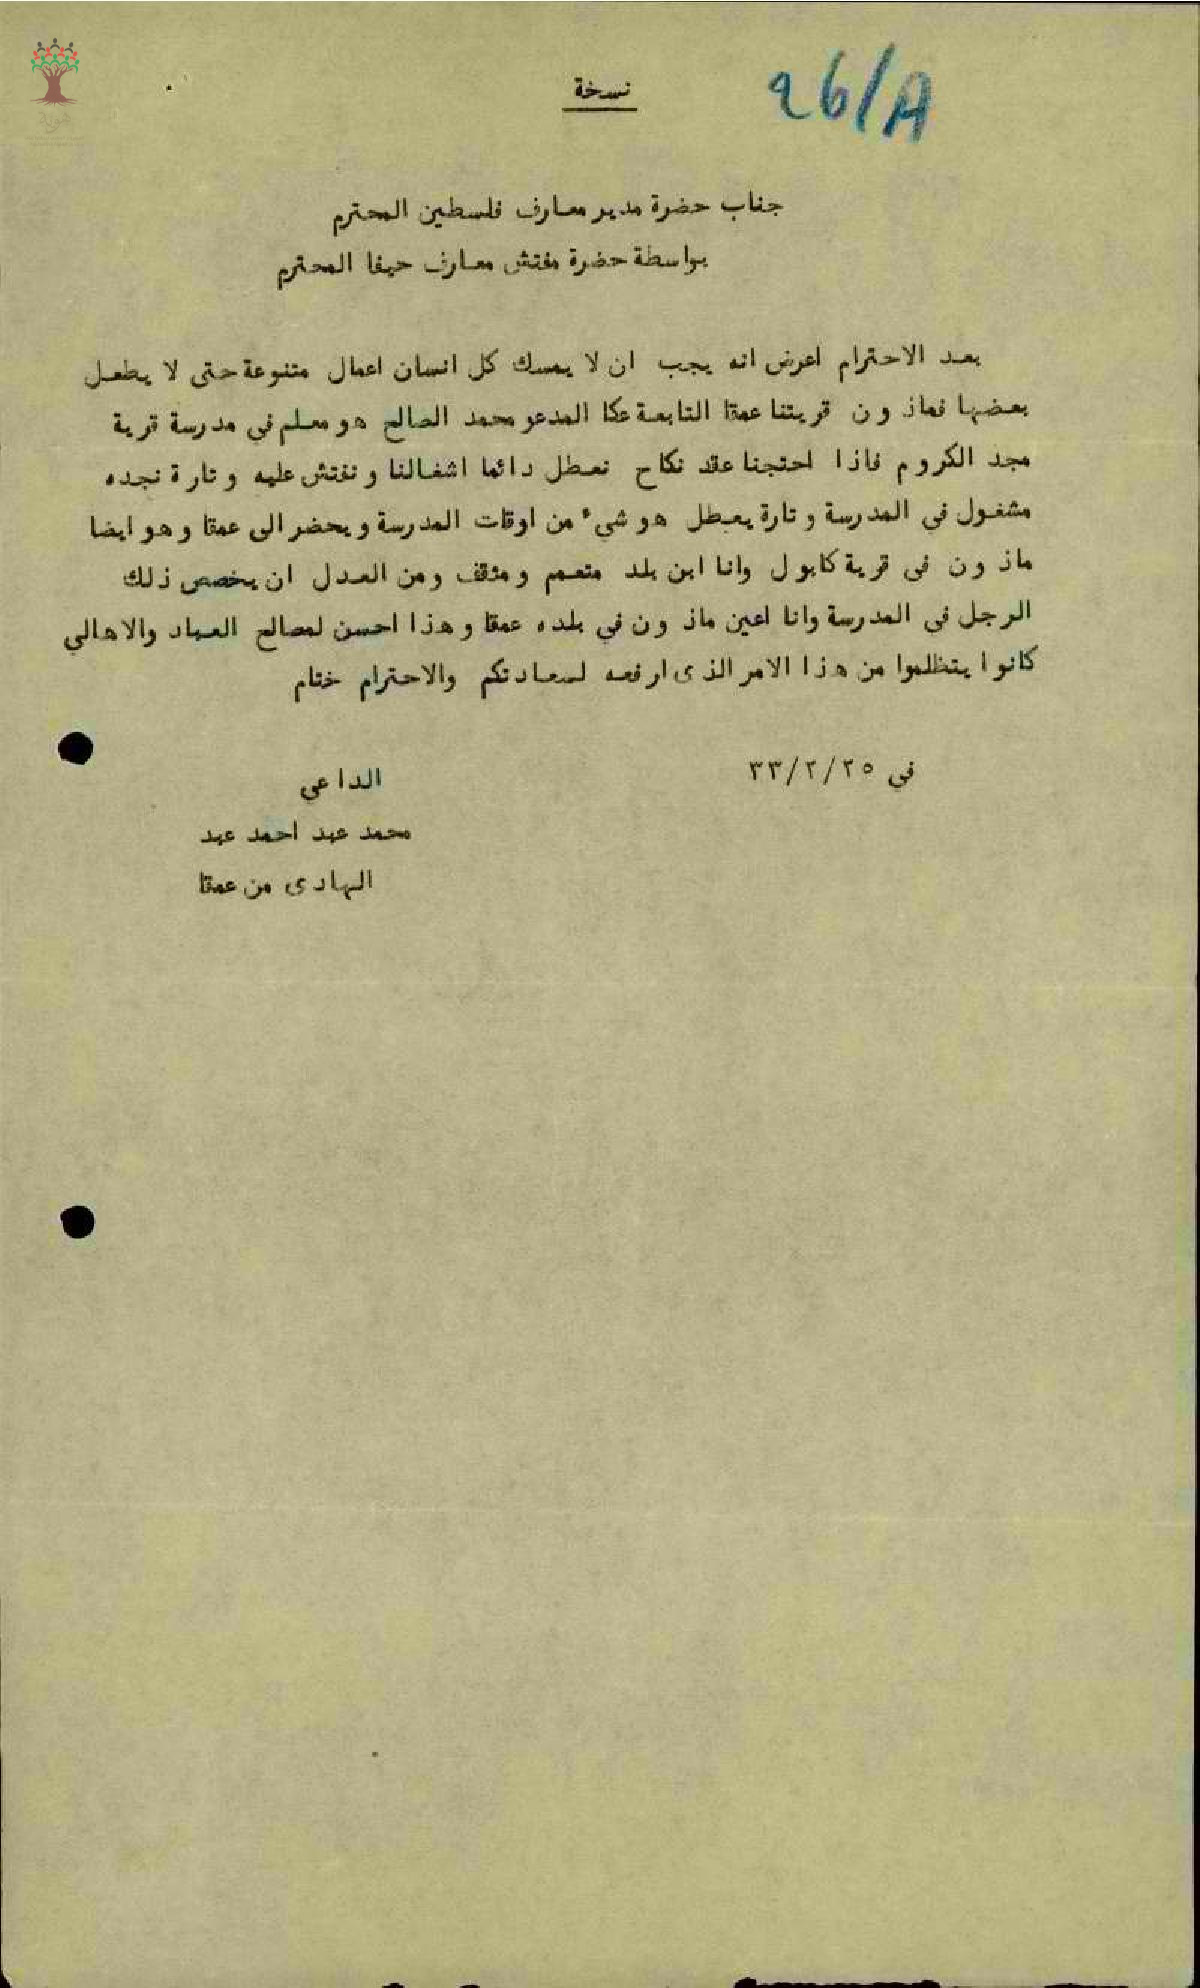 26/A
نسخة
جناب حضرة مدير معارف فلسطين المحترم
بواسطة حضرة مفتش معارف حيفا المحترم
بعد الاحترام اعرض انه يجب ان لا يمسك كل انسان اعمال متنوعة حتى لا يطعل
بعضها فماذون قريتنا عمقا التابعة عكا المدعو محمد الصالح هو معلم في مدرسة قرية
مجد الكروم فاذا احتجنا عقد نكاح نعطل دائما اشغالنا ونفتش عليه وتارة نجده
مشغول في المدرسة وتارة يعطل هو شيء من اوقات المدرسة ويحضر الى عمقا وهو ايضا
ماذون في قرية كابول وانا ابن بلد متعمم ومثقف ومن العدل ان يخصص ذلك
الرجل في المدرسة وانا اعين ماذون في بلده عمقا وهذا احسن لمصالح العباد والاهالي
كانوا يتظلموا من هذا الامر الذى ارفعه لسعادتكم والاحترام ختام
في ٣٣/٢/٢٥
الداعي
محمد عبد احمد عبد
الهادى من عمقا